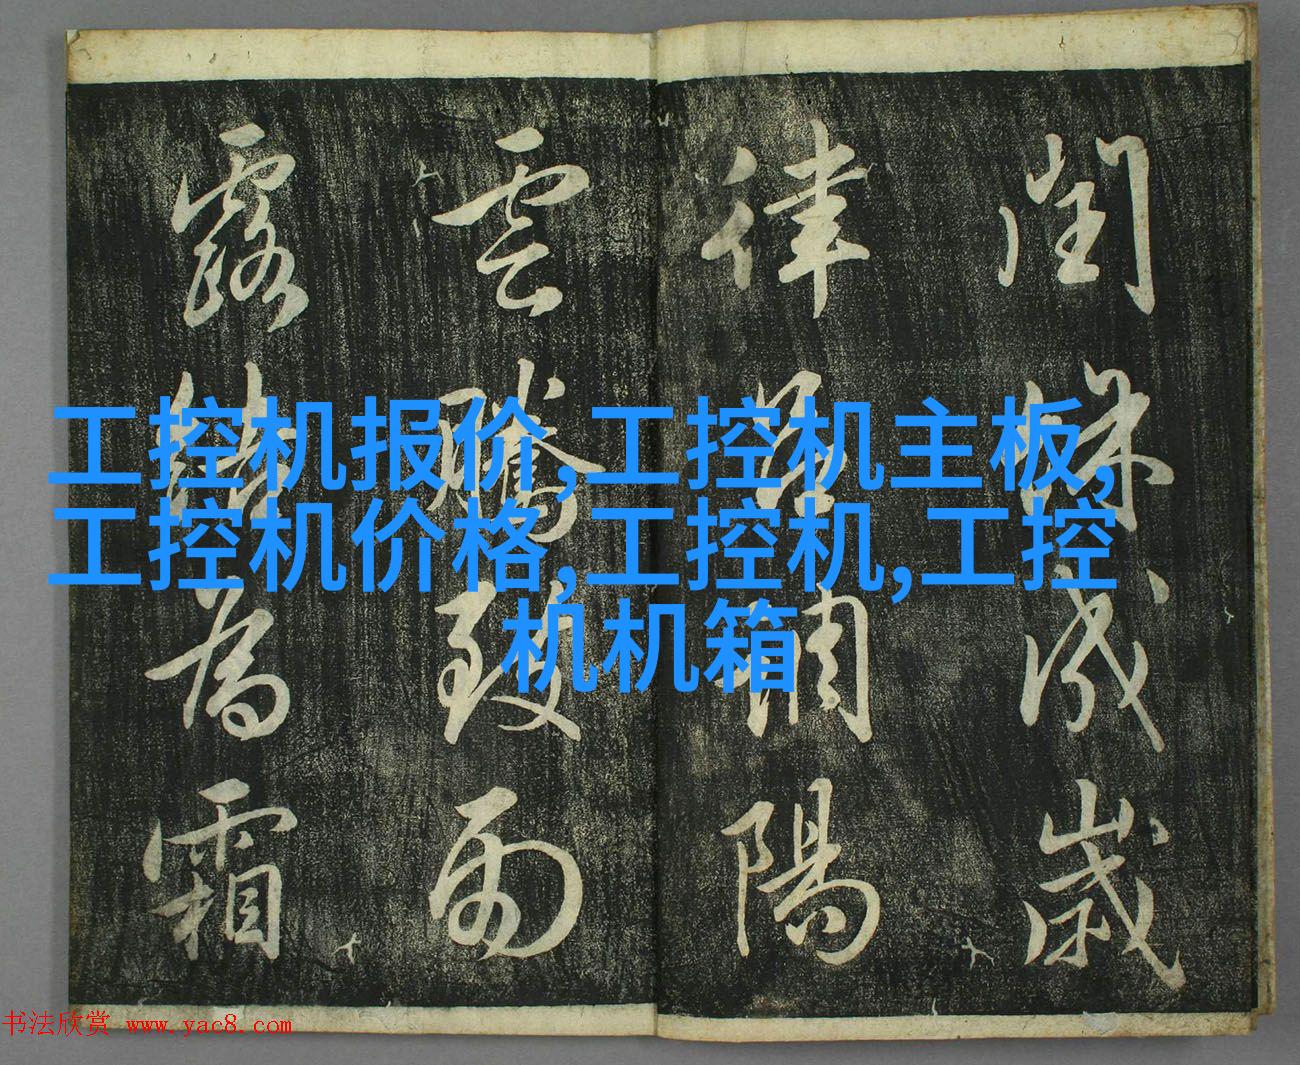 閏餘成歲
律呂調陽
雲騰致雨
露結為霜
工控机报价,工控机主板,
工控机价格,工控机,工控
机机箱
书法欣赏 www.yac8.com